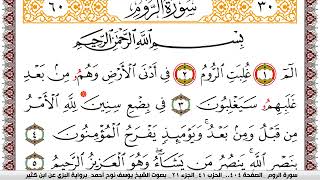 ٦٠ سُورَةُ الرُّومِ ٣٠
بِسْمِ اللَّهِ الرَّحْمَٰنِ الرَّحِيمِ
الٓمٓ ١ غُلِبَتِ الرُّومُ ٢ فِي أَدْنَى الْأَرْضِ وَهُمُ مِنْ بَعْدِ
غَلَبِهِمُ سَيَغْلِبُونَ ٣ فِي بِضْعِ سِنِينَ لِلَّهِ الْأَمْرُ
مِنْ قَبْلُ وَمِنْ بَعْدُ وَيَوْمَئِذٍ يَفْرَحُ الْمُؤْمِنُونَ ٤
بِنَصْرِ اللَّهِ يَنْصُرُ مَنْ يَشَاءُ وَهُوَ الْعَزِيزُ الرَّحِيمُ ٥
سورة الروم الصفحة ٤٠٤ .. الحزب ٤١ الجزء ٢١ بصوت الشيخ يوسف نوح أحمد برواية البزي عن ابن كثير